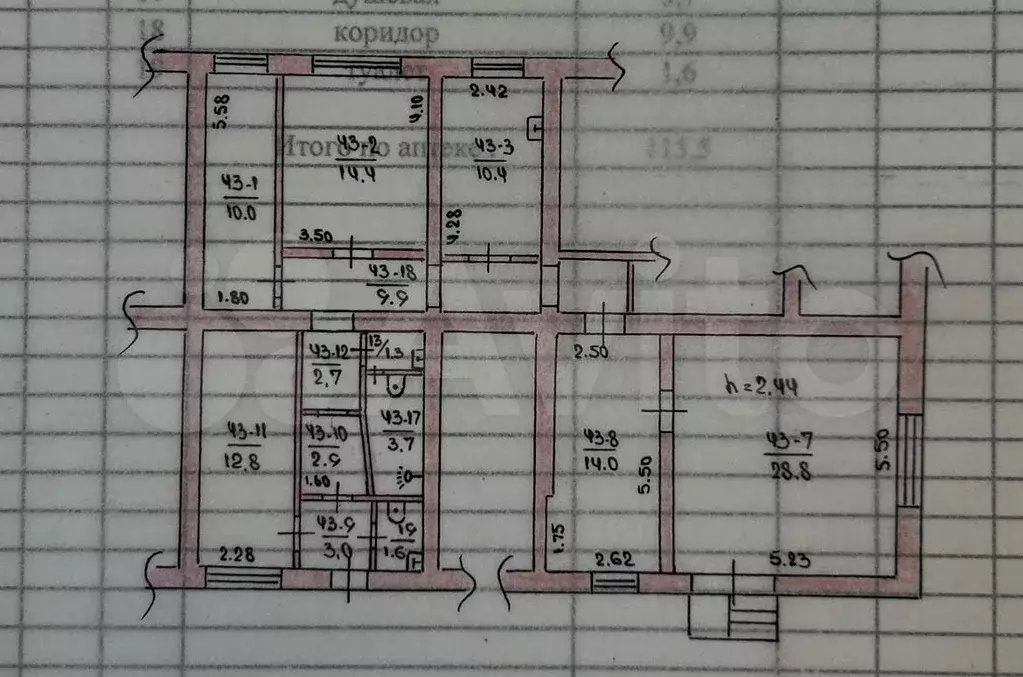 18 коридор 9,9
туалет 1,6
Итого по аптеке: 115,5
2.42
5.58
4.10
ЧЗ-2
14.4
ЧЗ-3
10.4
ЧЗ-1
10.0
4.28
3.50
ЧЗ-18
9.9
1.80
ЧЗ-12
2.7
13/1.3
2.50
h=2.44
ЧЗ-17
3.7
ЧЗ-11
12.8
ЧЗ-10
2.9
ЧЗ-8
14.0
ЧЗ-7
28.8
5.50
5.50
1.60
ЧЗ-9
3.0
19
1.6
1.75
2.28
2.62
5.23
Avito